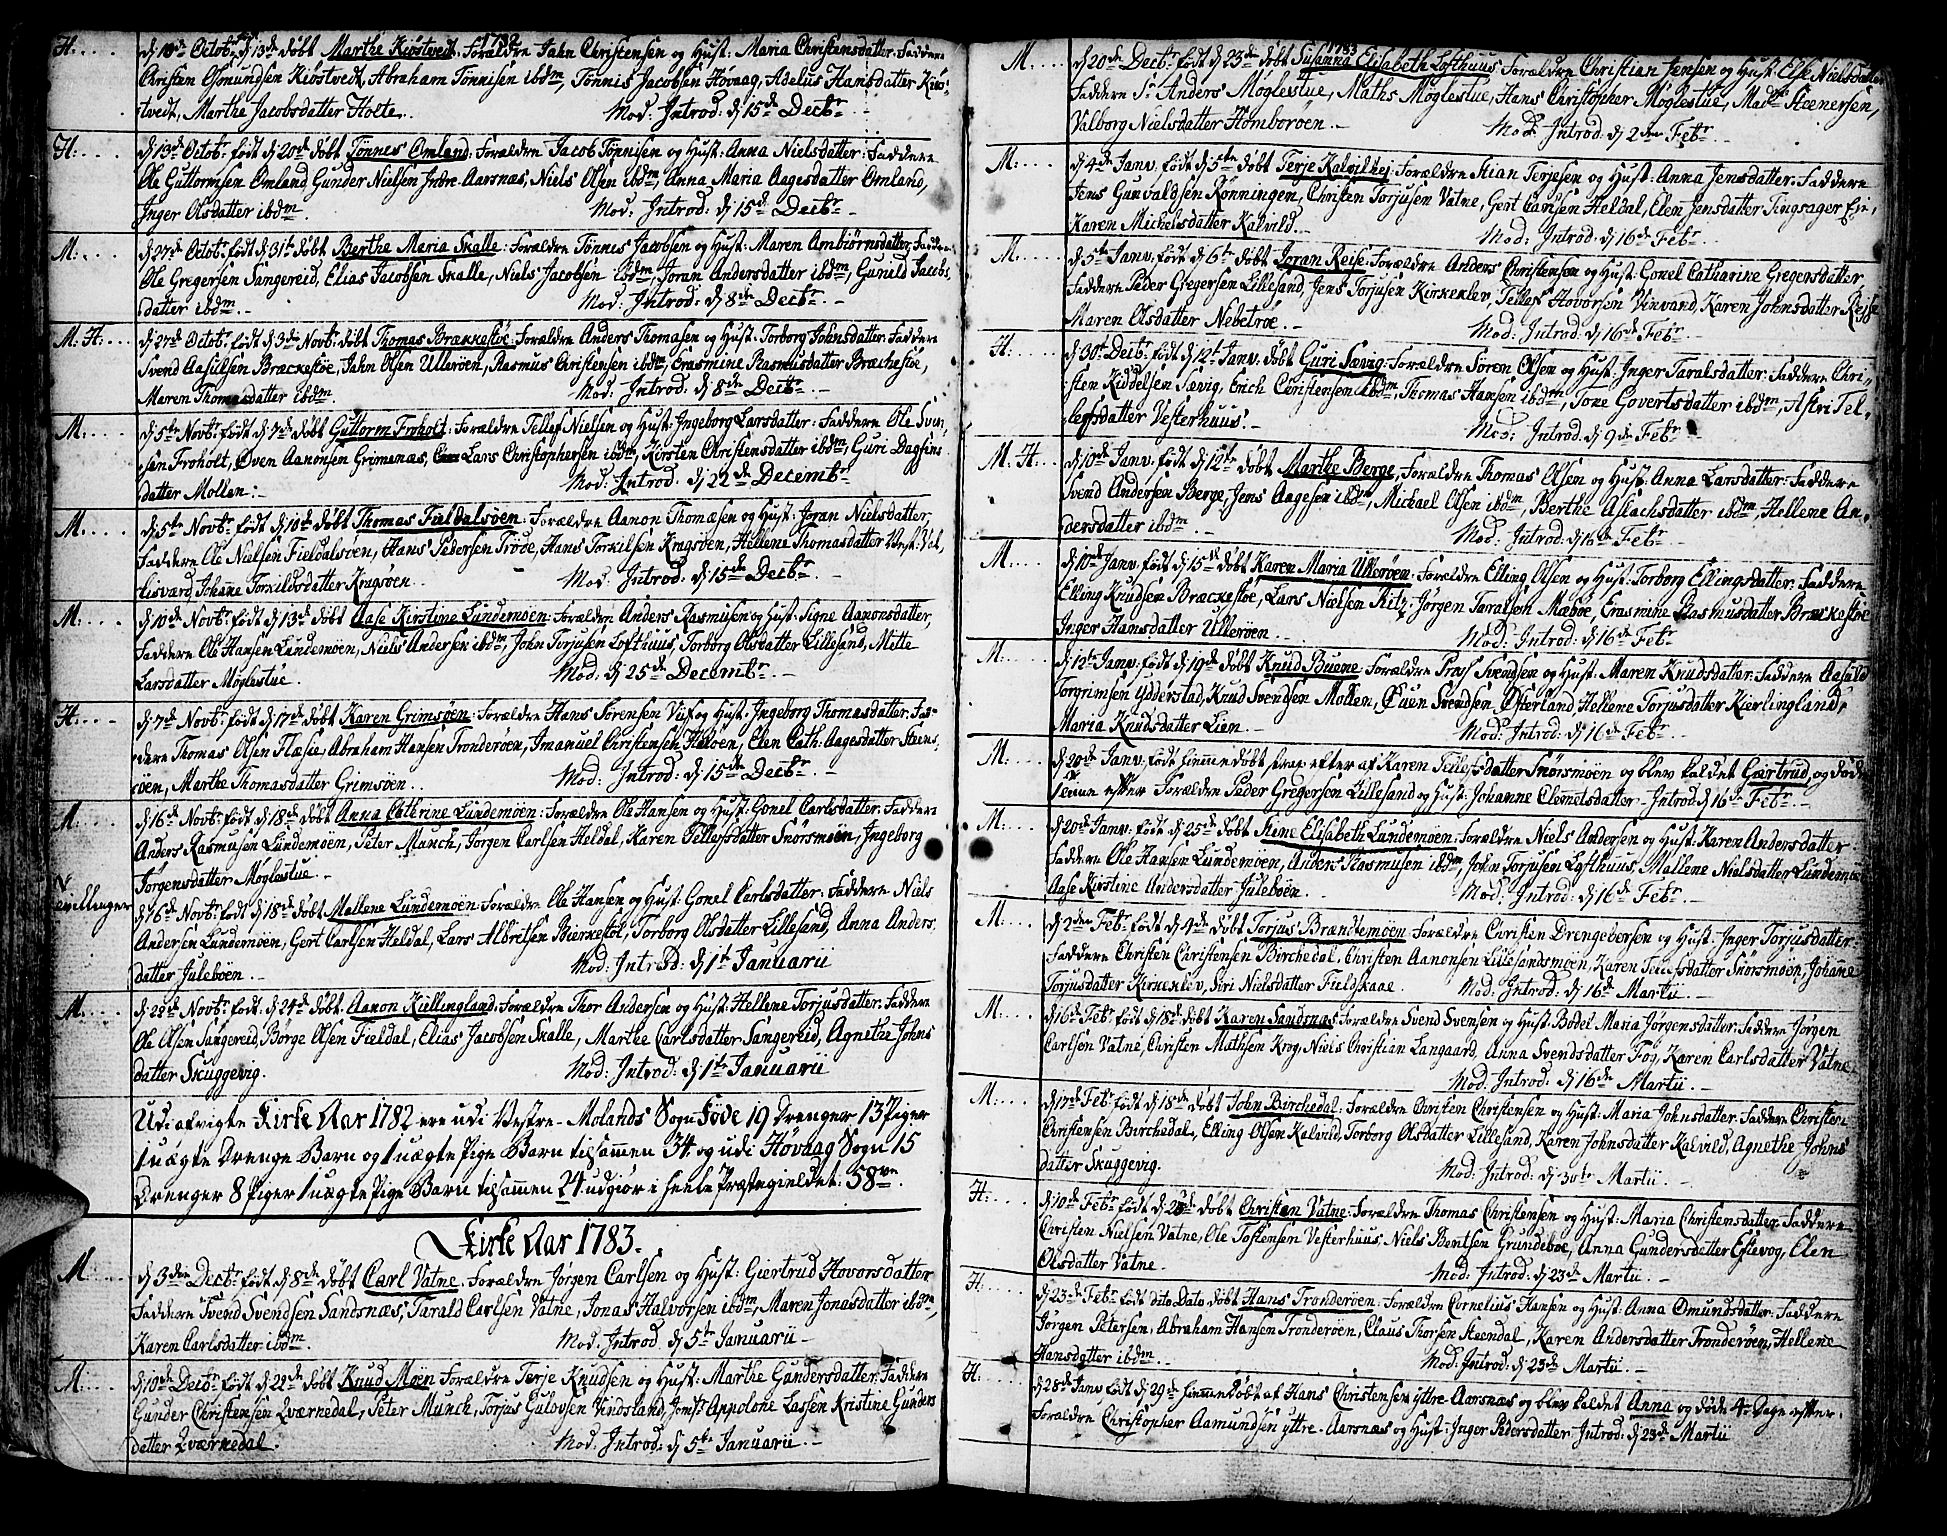 1782
H: d 10de Octob: født d 13de døbt Marthe Kiøstvedt Forældre Jahn Christensen og Hust: Maria Christensdatter: Faddere
Christen Osmundsen Kiøstvedt, Abraham Tønnisen ibdm, Tønnis Jacobsen Høvaag, Adelus Hansdatter Kiø-
stvedt, Marthe Jacobsdatter Holte. Mod: Introd: d 15de Decbr
H: d 19de Octob: født d 20de døbt Tønnes Omland: Forældre Jacob Tønnisen og Hust: Anna Nielsdatter: Faddere
Ole Guttormsen Omland Gunder Nielsen Indre-Aarsnæs, Niels Olsen ibdm, Anna Maria Aagesdatter Omland,
Inger Olsdatter ibdm. Mod: Introd: d 15de Decbr -
M: d 27de Octob: født d 31te døbt Berthe Maria Skalle: Forældre Tønnes Jacobsen og Hust: Maren Ambiørnsdatter: Faddere
Ole Gregersen Sangereid, Elias Jacobsen Skalle, Niels Jacobsen ibdm, Joran Andersdatter ibdm, Gunild Jacobs
datter ibdm. Mod: Introd: d 8de Decbr -
M: H: d 27de Octob: født d 3die Novb: døbt Thomas Brækkestøe: Forældre Anders Thomasen og Hust: Torborg Johnsdatter: Faddere
Svend Aasulsen Brækestøe, Jahn Olsen Ullerøen, Rasmus Christensen ibdm, Erasmine Rasmusdatter Brækestøe,
Maren Thomasdatter ibdm. Mod: Introd: d 8de Decbr -
M: d 5te Novbr: født d 7de døbt Guttorm Froholt: Forældre Tellef Nielsen og Hust: Ingeborg Larsdatter: Faddere Ole Sven,
sen Froholt, Øven Aanonsen Grimenæs, Lars Christophersen ibdm, Kirsten Christensdatter ibdm, Guri Dagfins
datter Mollen: Mod: Introd: d 22de Decembr
M: d 5te Novbr: født d 10de døbt Thomas Fieldalsøen: Forældre Aanon Thomæsen og Hust: Joran Nielsdatter,
Faddere Ole Nielsen Fieldalsøen, Hans Pedersen Trøde, Hans Torkilsen Kragsøen, Hellene Thomasdatter Vest-Val,
lisværd, Johanne Torkildsdatter Kragsøen. Mod: Introd: d 15de Decbr -
M: d 10de Novbr: født d 13de døbt Aase Kirstine Lundemoen: Forældre Anders Rasmusen og Hust: Signe Aanonsdatter,
Faddere Ole Hansen Lundemoen, Niels Andersen ibdm, John Torjusen Lofthuus, Torborg Olsdatter Lillesand, Mette
Larsdatter Møglestue. Mod: d 25de Decembr -
H: d 7de Novbr: født d 17de døbt Karen Grimsøen: Forældre Hans Sørensen Vüf og Hust: Ingeborg Thomasdatter: Fad-
dere Thomas Olsen Flæsie, Abraham Hansen Tronderøen, Imanuel Christensen Haløen, Elen Cath: Aagesdatter Steens,
øen, Marthe Thomasdatter Grimsøen. Mod: Introd: d 15de Decbr -
M: d 16de Novbr: født d 18de døbt Anna Cathrine Lundemoen: Forældre Ole Hansen og Hust: Gonel Carlsdatter: Faddere
Anders Rasmusen Lundemoen, Peter Munch, Jørgen Carlsen Heldal, Karen Tellefsdatter Snørsmoen, Ingeborg
Jørgensdatter Møglestue. -
Tvillinger d 16de Novbr: født d 18de døbt Mallene Lundemoen: Forældre Ole Hansen og Hust: Gonel Carlsdatter: Faddere Niels
Andersen Lundemoen, Gert Carlsen Heldal, Lars Aldritsen Bierkestøl, Torborg Olsdatter Lillesand, Anna Anders
datter Juleboen. Mod: Introd: d 1te Januarii
M: d 22de Novbr: født: d 24de døbt Aanon Kiellingland: Forældre Thor Andersen og Hust: Hellene Torjusdatter: Faddere
Ole Olsen Sangereid, Børge Olsen Fieldal, Elias Jacobsen Skalle, Marthe Carlsdatter Sangereid, Agnethe Johns
datter Skuggevig. Mod: Introd: d 1te Januarii
Udi afvigte Kirke Aar 1782 ere udi Vestre-Molands Sogn føde 19 Drenger 13 Piger
1 uægte Drenge Barn og 1 uægte Pige Barn tilsammen 34 og udi Høvaag Sogn 15
Drenger 8 Piger 1 uægte Pige Barn tilsammen 24 udgiør i heele Præstegieldet: 58ve.
Kirke Aar 1783.
M d 3den Decbr: født d 8de døbt Carl Vatne: Forældre Jørgen Carlsen og Hust: Giertrud Hovorsdatter,
Faddere Svend Svendsen Sandsnæs, Tarald Carlsen Vatne, Jonas Halvorsen ibdm, Maren Jonasdatter ibdm,
Karen Carlsdatter ibdm. Mod: Introd: d 5te Januarii -
M: d 10de Decbr: født d 22de døbt Knud Moen Forældre Terje Knudsen og Hust: Marthe Gundersdatter: Faddere
Gunder Christensen Qværnedal, Peter Munch, Torjus Gulovsen Vindsland, Jomfr: Appolone Lassen Kristine Gunders
datter Qværnedal. Mod: Introd: d 5te Januarii -
1783
M: d 20de Decbr: født d 23de døbt Susanna Elisabeth Lofthuus Forældre Christian Jensen og Hust: Else Nielsdatter
Faddere Sr Anders Møglestue, Maths Møglestue, Hans Christopher Møglestue, Madme Steenersen,
Valborg Nielsdatter Homborøen. - Mod: Introd: d 2den Febr
M: d 4de Janv: født d 5te døbt Terje Kalvildhei Forældre Stian Terjesen og Hust: Anna Jensdatter: Faddere
Jens Gunvaldsen Rønningen, Christen Torjusen Vatne, Gert Carlsen Heldal, Elen Jensdatter Tingsager Eie,
Karen Michelsdatter Kalvild. Mod: Introd: d 16de Febr
M: d 5te Janv: født d 6te døbt Joran Reise: Forældre Anders Christensen og Hust: Gonel Catharine Gregersdatter
Faddere Peder Gregersen Lillesand, Jens Torjusen Kirkeklev, Tellef Hovorsen Vinvand, Karen Johnsdatter Reise
Maren Olsdatter Nebetroe. - Mod: Introd: d 16de Febr
H: d 30te Decbr: født d 12te Janv: døbt Guri Sævig: Forældre Søren Olsen og Hust: Inger Taralsdatter: Faddere Chri,
sten Kiddelsen Sævig, Erich Christensen ibdm, Thomas Hansen ibdm, Tone Govertsdatter ibdm, Astri Tel-
lefsdatter Vesterhuus: Mod: Introd: d 9de Febr
M: H: d 10de Janv: født d 12te døbt Marthe Berge, Forældre Thomas Olsen og Hust: Anna Larsdatter: Faddere
Svend Andersen Berge, Jens Aagesen ibdm, Michael Olsen ibdm, Berthe Aslachsdatter ibdm, Hellene An-
dersdatter ibdm - Mod: Introd: d 16de Febr
M: d 10de Janv: født d 15de døbt Karen Maria Ullerøen: Forældre Elling Olsen og Hust: Torborg Ellingsdatter: Faddere
Elling Knudsen Brækestøe, Lars Nielsen Ritz, Jørgen Taralsen Mæbøe, Erasmine Rasmusdatter Brækestøe
Inger Hansdatter Ullerøen. Mod: Introd: d 16de Febr
M: d 12te Janv: født d 19de døbt Knud Buene: Forældre Svendsen og Hust: Maren Knudsdatter: Faddere Aasuld
Torgrimsen Ydderstad, Knud Svendsen Mollen, Øuen Svendsen Østerland Hellene Torjusdatter Kierlingland,
Maria Knudsdatter Lien. Mod: Introd: d 16de Febr -
M: d 20de Janv: født hiemme døbt strax efter af Karen Tellefsdatter Snørsmoen og blev kaldet Giertrud, og døde
samme efter Forældre Peder Gregersen Lillesand og Hust: Johanne Clemetsdatter - Introd: d 16de Febr -
M: d 20de Janv: født d 25de døbt Stine Elisabeth Lundemoen: Forældre Niels Andersen og Hust: Karen Andersdatter
Faddere Ole Hansen Lundemoen, Anders Rasmusen ibdm, John Torjusen Lofthuus, Mallene Nielsdatter Lundemoen
Aase Kirstine Andersdatter Juleboen. Mod: Introd: d 16de Febr -
M: d 2den Febr: født d 4de døbt Torjus Brændemoen Forældre Christen Drengebersen og Hust: Inger Torjusdatter
Faddere Christen Christensen Birchedal, Christen Aanonsen Lillesandsmoen, Karen Tellefsdatter Snørsmoen, Johanne
Torjusdatter Kirkeklev, Siri Nielsdatter Fieldskaae. Mod: Introd: d 16de Martii -
M: d 16de Febr: født d 18de døbt Karen Sandsnæs Forældre Svend Svensen og Hust: Bodel Maria Jørgensdatter: Faddere Jørgen
Carlsen Vatne, Christen Mathisen Krog, Niels Christian Langaard, Anna Svendsdatter Foy, Karen Carlsdatter Vatne
Mod: Introd: d 16de Martii -
M: d 17de Febr: født d 18de døbt John Birchedal: Forældre Christen Christensen og Hust: Maria Johnsdatter: Faddere Christen
Christensen Birchedal, Elling Olsen Kalvild, Torborg Olsdatter Lillesand, Karen Johnsdatter Kalvild, Agnethe Johns
datter Skuggevig. Mod: Introd: d 30te Martii
H: d 10de Febr: født d 23de døbt Christen Vatne: Forældre Thomas Christensen og Hust: Maria Christensdatter: Faddere
Christen Nielsen Vatne, Ole Tostensen Vesterhuus, Niels Bentsen Grundeboe, Anna Gundersdatter Eftevog, Elen
Olsdatter Vatne. Mod: Introd: d 23de Martii -
H: d 23de Febr: født dito Dato døbt Hans Tronderøen: Forældre Cornelius Hansen og Hust: Anna Omundsdatter: Faddere
Jørgen Petersen, Abraham Hansen Tronderøen, Claus Thorsen Steendal, Karen Andersdatter Tronderøen, Hellene
Hansdatter ibdm. Mod: Introd: d 23de Martii -
H: d 28de Janv: født d 29de hiemme døbt af Hans Christensen yttre-Aarsnæs og blev kaldet Anna og døde 4re Dage efter:
Forældre Christopher Aamundsen yttre-Aarsnæs og Hust: Inger Pedersdatter Introd: d 23de Martii